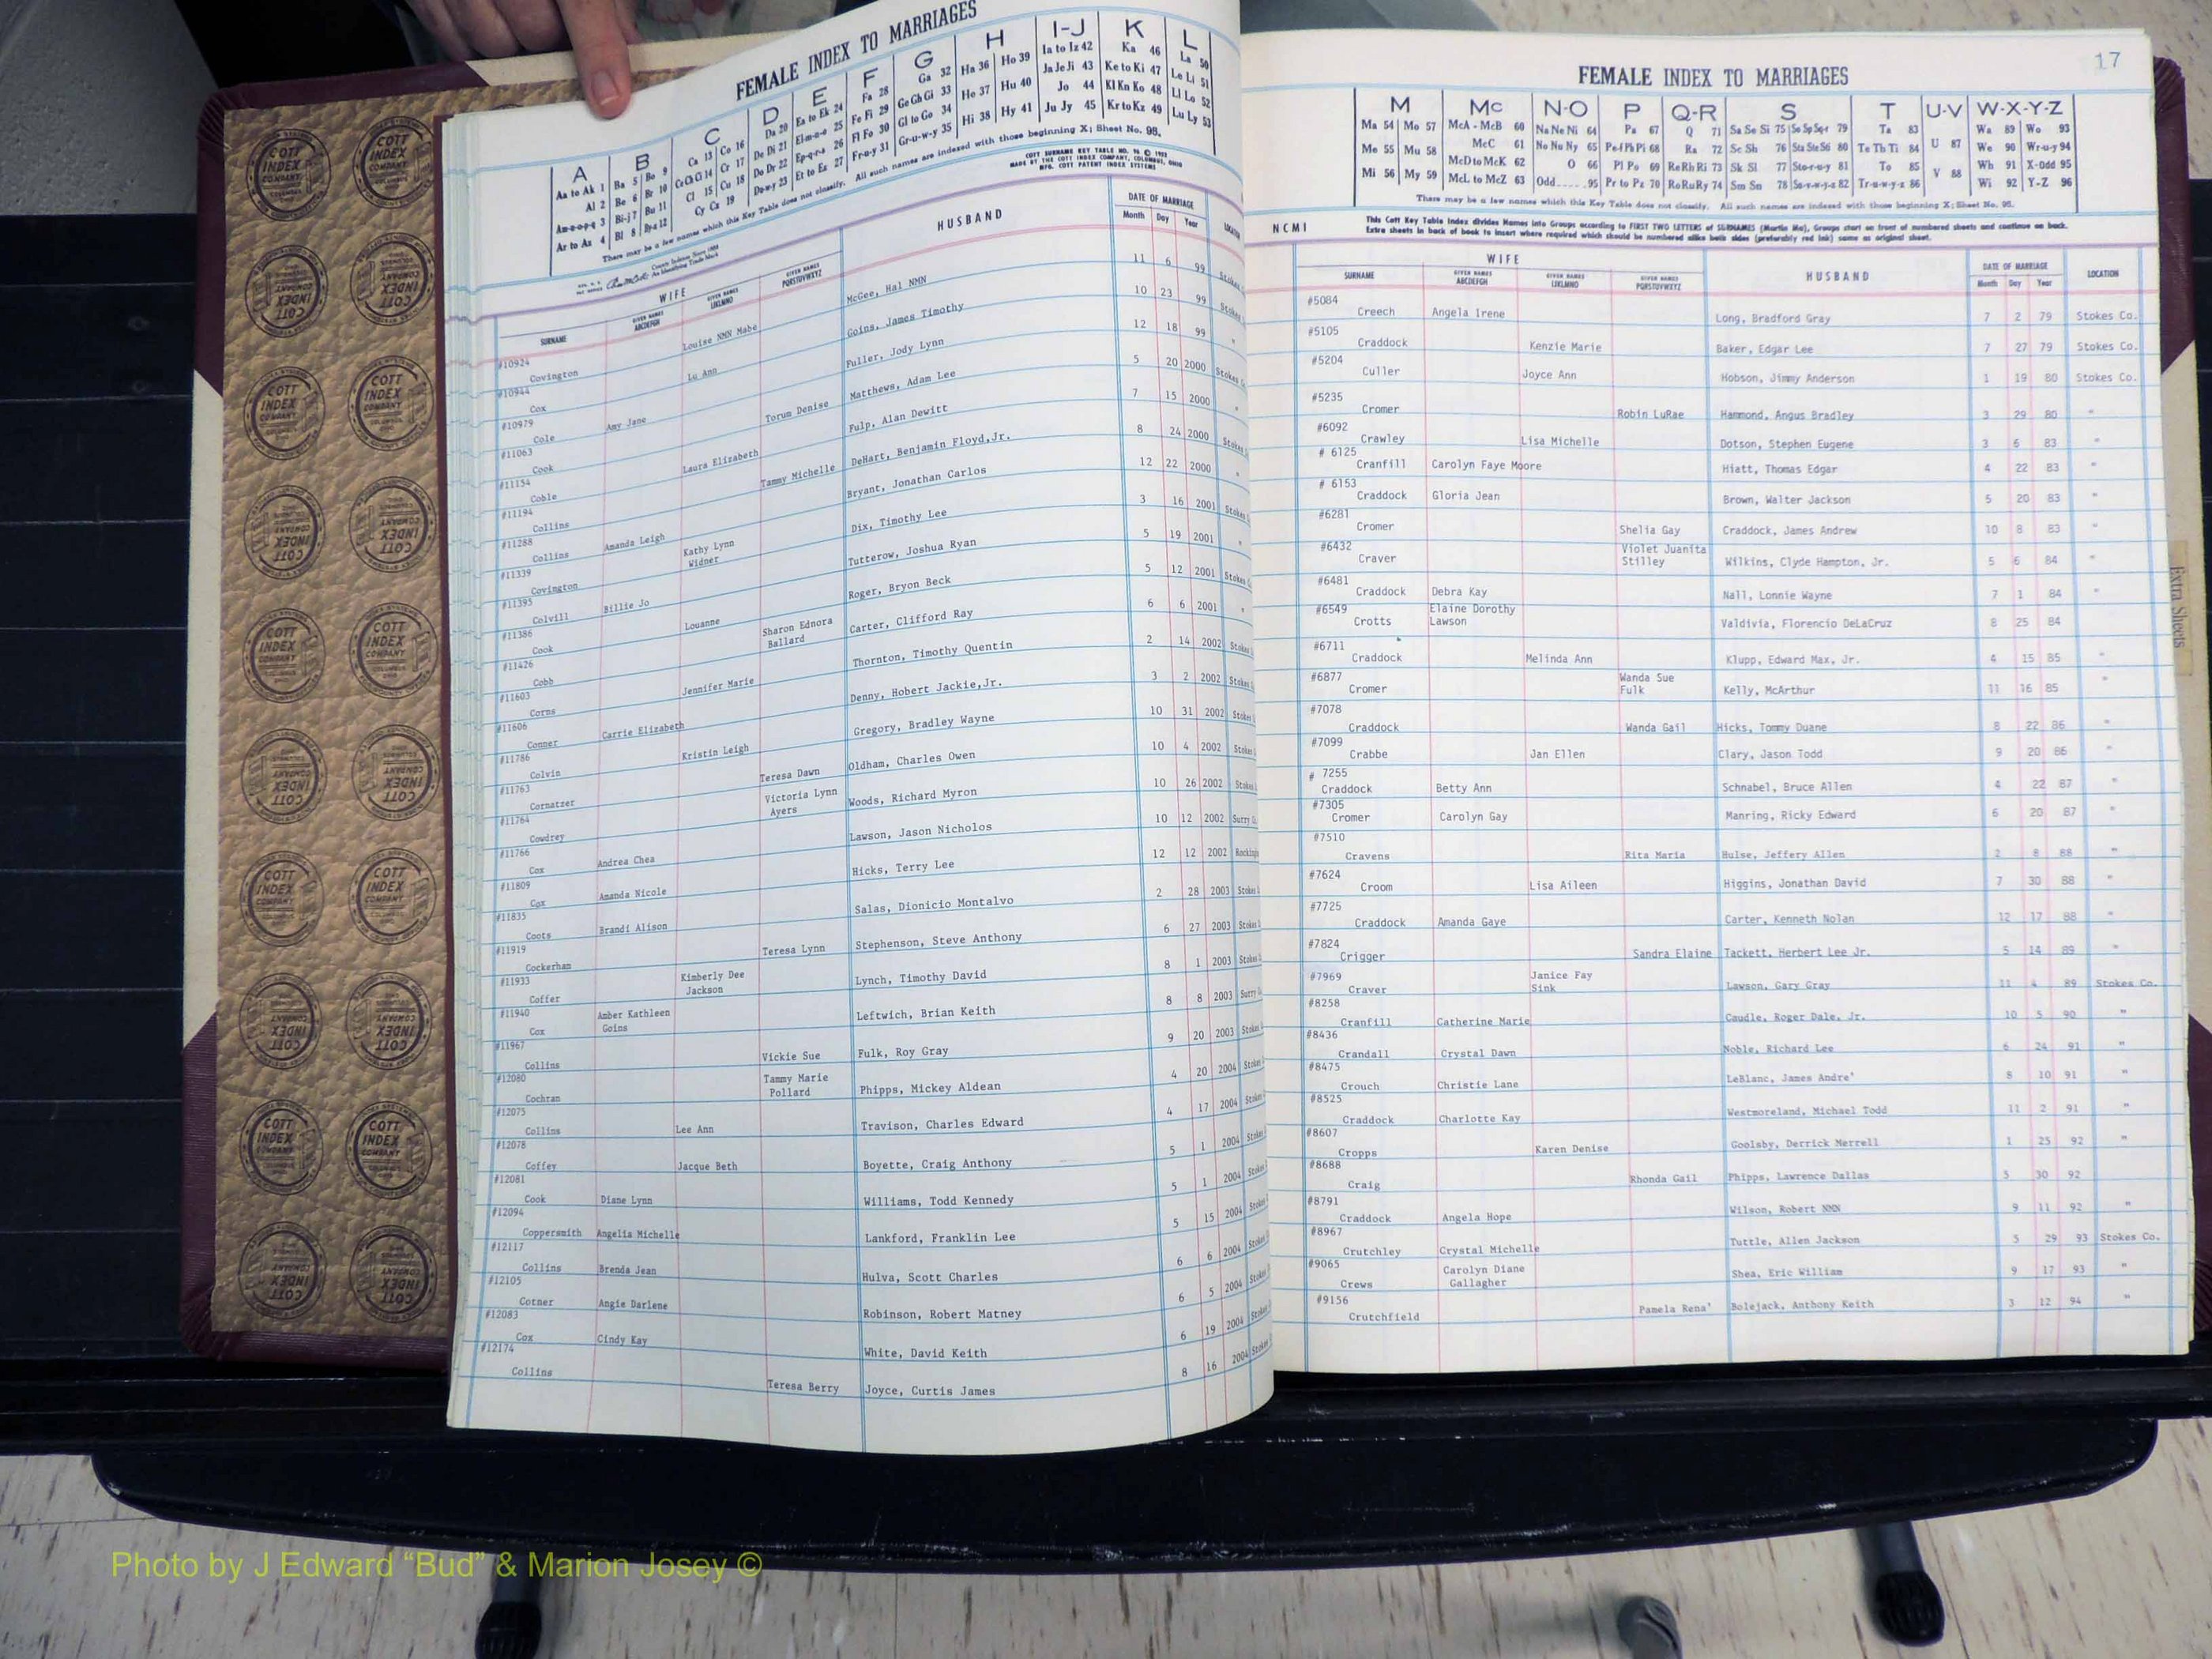 FEMALE INDEX TO MARRIAGES
A B C D E F G H I-J K L
Aa to Ak 1 Ba 5 Be 9 Ca 13 Co 16 Da 20 Ea to Ek 24 Fa 28 Ga 32 Ha 36 Ho 39 Ia to Iz 42 Ka 46 La 50
Al 2 Be 6 Br 10 Ce Ch Ci 14 Cr 17 De Di 21 El-m-n-o 25 Fe Fi 29 Ge Gh Gi 33 He 37 Hu 40 Ja Je Ji 43 Ke to Ki 47 Le Li 51
Am-n-o-p-q 3 Bi-j 7 Bu 11 Cl 15 Cu 18 Do Dr 22 Ep-q-r-s 26 Fl Fo 30 Gl to Go 34 Hi 38 Hy 41 Jo 44 Kl Kn Ko 48 Ll Lo 52
Ar to Az 4 Bl 8 By-z 12 Cy Cz 19 Du-w-y 23 Et to Ez 27 Fr-u-y 31 Gr-u-w-y 35 Ju Jy 45 Kr to Kz 49 Lu Ly 53
There may be a few names which this Key Table does not classify. All such names are indexed with those beginning X; Sheet No. 95.
COTT SURNAME KEY TABLE NO.
MADE BY THE COTT INDEX COMPANY, COLUMBUS, OHIO
MFG. COTT PATENT INDEX SYSTEMS
WIFE HUSBAND DATE OF MARRIAGE
SURNAME GIVEN NAMES ABCDEFGH GIVEN NAMES IJKLMNO GIVEN NAMES PQRSTUVWXYZ Month Day Year LOCATION
#10924 Covington Louise NMN Mabe McGee, Hal NMN 11 6 99 Stokes
#10944 Cox Lu Ann Goins, James Timothy 10 23 99 Stokes
#10979 Cole Amy Jane Fuller, Jody Lynn 12 18 99 "
#11063 Cook Torum Denise Matthews, Adam Lee 5 20 2000 Stokes
#11154 Coble Laura Elizabeth Fulp, Alan Dewitt 7 15 2000 "
#11194 Collins Tammy Michelle DeHart, Benjamin Floyd,Jr. 8 24 2000 Stokes
#11288 Collins Amanda Leigh Bryant, Jonathan Carlos 12 22 2000 "
#11339 Covington Kathy Lynn Widner Dix, Timothy Lee 3 16 2001 Stokes
#11395 Colvill Billie Jo Tutterow, Joshua Ryan 5 19 2001 "
#11386 Cook Louanne Roger, Bryon Beck 5 12 2001 Stokes
#11426 Cobb Sharon Ednora Ballard Carter, Clifford Ray 6 6 2001 "
#11603 Corns Jennifer Marie Thornton, Timothy Quentin 2 14 2002 Stokes
#11606 Conner Carrie Elizabeth Denny, Hobert Jackie,Jr. 3 2 2002 Stokes
#11786 Colvin Kristin Leigh Gregory, Bradley Wayne 10 31 2002 Stokes
#11763 Cornatzer Teresa Dawn Oldham, Charles Owen 10 4 2002 Stokes
#11764 Cowdrey Victoria Lynn Ayers Woods, Richard Myron 10 26 2002 Stokes
#11766 Cox Andrea Chea Lawson, Jason Nicholos 10 12 2002 Surry
#11809 Cox Amanda Nicole Hicks, Terry Lee 12 12 2002
#11835 Coots Brandi Alison Salas, Dionicio Montalvo 2 28 2003 Stokes
#11919 Cockerham Teresa Lynn Stephenson, Steve Anthony 6 27 2003 Stokes
#11933 Coffer Kimberly Dee Jackson Lynch, Timothy David 8 1 2003 Stokes
#11940 Cox Amber Kathleen Goins Leftwich, Brian Keith 8 8 2003 Surry
#11967 Collins Vickie Sue Fulk, Roy Gray 9 20 2003 Stokes
#12080 Cochran Tammy Marie Pollard Phipps, Mickey Aldean 4 20 2004 Stokes
#12075 Collins Lee Ann Travison, Charles Edward 4 17 2004 Stokes
#12078 Coffey Jacque Beth Boyette, Craig Anthony 5 1 2004 Stokes
#12081 Cook Diane Lynn Williams, Todd Kennedy 5 1 2004 Stokes
#12094 Coppersmith Angelia Michelle Lankford, Franklin Lee 5 15 2004 Stokes
#12117 Collins Brenda Jean Hulva, Scott Charles 6 6 2004 Stokes
#12105 Cotner Angie Darlene Robinson, Robert Matney 6 5 2004 Stokes
#12083 Cox Cindy Kay White, David Keith 6 19 2004 Stokes
#12174 Collins Teresa Berry Joyce, Curtis James 8 16 2004 Stokes
17
FEMALE INDEX TO MARRIAGES
M Mc N-O P Q-R S T U-V W-X-Y-Z
Ma 54 Mo 57 McA - McB 60 Na Ne Ni 64 Pa 67 Q 71 Sa Se Si 75 So Sp Sq-r 79 Ta 83 U 87 Wa 89 Wo 93
Me 55 Mu 58 McC 61 No Nu Ny 65 Pe-f Ph Pi 68 Ra 72 Sc Sh 76 Sta Ste S6 80 Te Th Ti 84 We 90 Wr-u-y 94
Mi 56 My 59 McD to McK 62 O 66 Pl Po 69 Re Rh Ri 73 Sk Sl 77 Sto-r-u-y 81 To 85 V 88 Wh 91 X-Odd 95
McL to McZ 63 Odd.....95 Pr to Pz 70 Ro Ru Ry 74 Sm Sn 78 Su-v-w-y-z 82 Tr-u-w-y-z 86 Wi 92 Y-Z 96
There may be a few names which this Key Table does not classify. All such names are indexed with those beginning X; Sheet No. 95.
NCMI This Cott Key Table Index divides Names into Groups according to FIRST TWO LETTERS of SURNAMES (Martin Ma), Groups start on front of numbered sheets and continue on back.
Extra sheets in back of book to insert where required which should be numbered alike both sides (preferably red ink) same as original sheet.
WIFE HUSBAND DATE OF MARRIAGE LOCATION
SURNAME GIVEN NAMES ABCDEFGH GIVEN NAMES IJKLMNO GIVEN NAMES PQRSTUVWXYZ Month Day Year
#5084 Creech Angela Irene Long, Bradford Gray 7 2 79 Stokes Co.
#5105 Craddock Kenzie Marie Baker, Edgar Lee 7 27 79 Stokes Co.
#5204 Culler Joyce Ann Hobson, Jimmy Anderson 1 19 80 Stokes Co.
#5235 Cromer Robin LuRae Hammond, Angus Bradley 3 29 80 "
#6092 Crawley Lisa Michelle Dotson, Stephen Eugene 3 6 83 "
# 6125 Cranfill Carolyn Faye Moore Hiatt, Thomas Edgar 4 22 83 "
# 6153 Craddock Gloria Jean Brown, Walter Jackson 5 20 83 "
#6281 Cromer Shelia Gay Craddock, James Andrew 10 8 83 "
#6432 Craver Violet Juanita Stilley Wilkins, Clyde Hampton, Jr. 5 6 84 "
#6481 Craddock Debra Kay Nall, Lonnie Wayne 7 1 84 "
#6549 Crotts Elaine Dorothy Lawson Valdivia, Florencio DeLaCruz 8 25 84
#6711 Craddock Melinda Ann Klupp, Edward Max, Jr. 4 15 85 "
#6877 Cromer Wanda Sue Fulk Kelly, McArthur 11 16 85 "
#7078 Craddock Wanda Gail Hicks, Tommy Duane 8 22 86 "
#7099 Crabbe Jan Ellen Clary, Jason Todd 9 20 86 "
# 7255 Craddock Betty Ann Schnabel, Bruce Allen 4 22 87 "
#7305 Cromer Carolyn Gay Manring, Ricky Edward 6 20 87 "
#7510 Cravens Rita Maria Hulse, Jeffery Allen 2 8 88 "
#7624 Croom Lisa Aileen Higgins, Jonathan David 7 30 88 "
#7725 Craddock Amanda Gaye Carter, Kenneth Nolan 12 17 88 "
#7824 Crigger Sandra Elaine Tackett, Herbert Lee Jr. 5 14 89 "
#7969 Craver Janice Fay Sink Lawson, Gary Gray 11 4 89 Stokes Co.
#8258 Cranfill Catherine Marie Caudle, Roger Dale, Jr. 10 5 90 "
#8436 Crandall Crystal Dawn Noble, Richard Lee 6 24 91 "
#8475 Crouch Christie Lane LeBlanc, James Andre' 8 10 91 "
#8525 Craddock Charlotte Kay Westmoreland, Michael Todd 11 2 91 "
#8607 Cropps Karen Denise Goolsby, Derrick Merrell 1 25 92 "
#8688 Craig Rhonda Gail Phipps, Lawrence Dallas 5 30 92 "
#8791 Craddock Angela Hope Wilson, Robert NMN 9 11 92 "
#8967 Crutchley Crystal Michelle Tuttle, Allen Jackson 5 29 93 Stokes Co.
#9065 Crews Carolyn Diane Gallagher Shea, Eric William 9 17 93 "
#9156 Crutchfield Pamela Rena' Bolejack, Anthony Keith 3 12 94 "
Extra Sheets
COTT INDEX COMPANY
Photo by J Edward “Bud” & Marion Josey ©